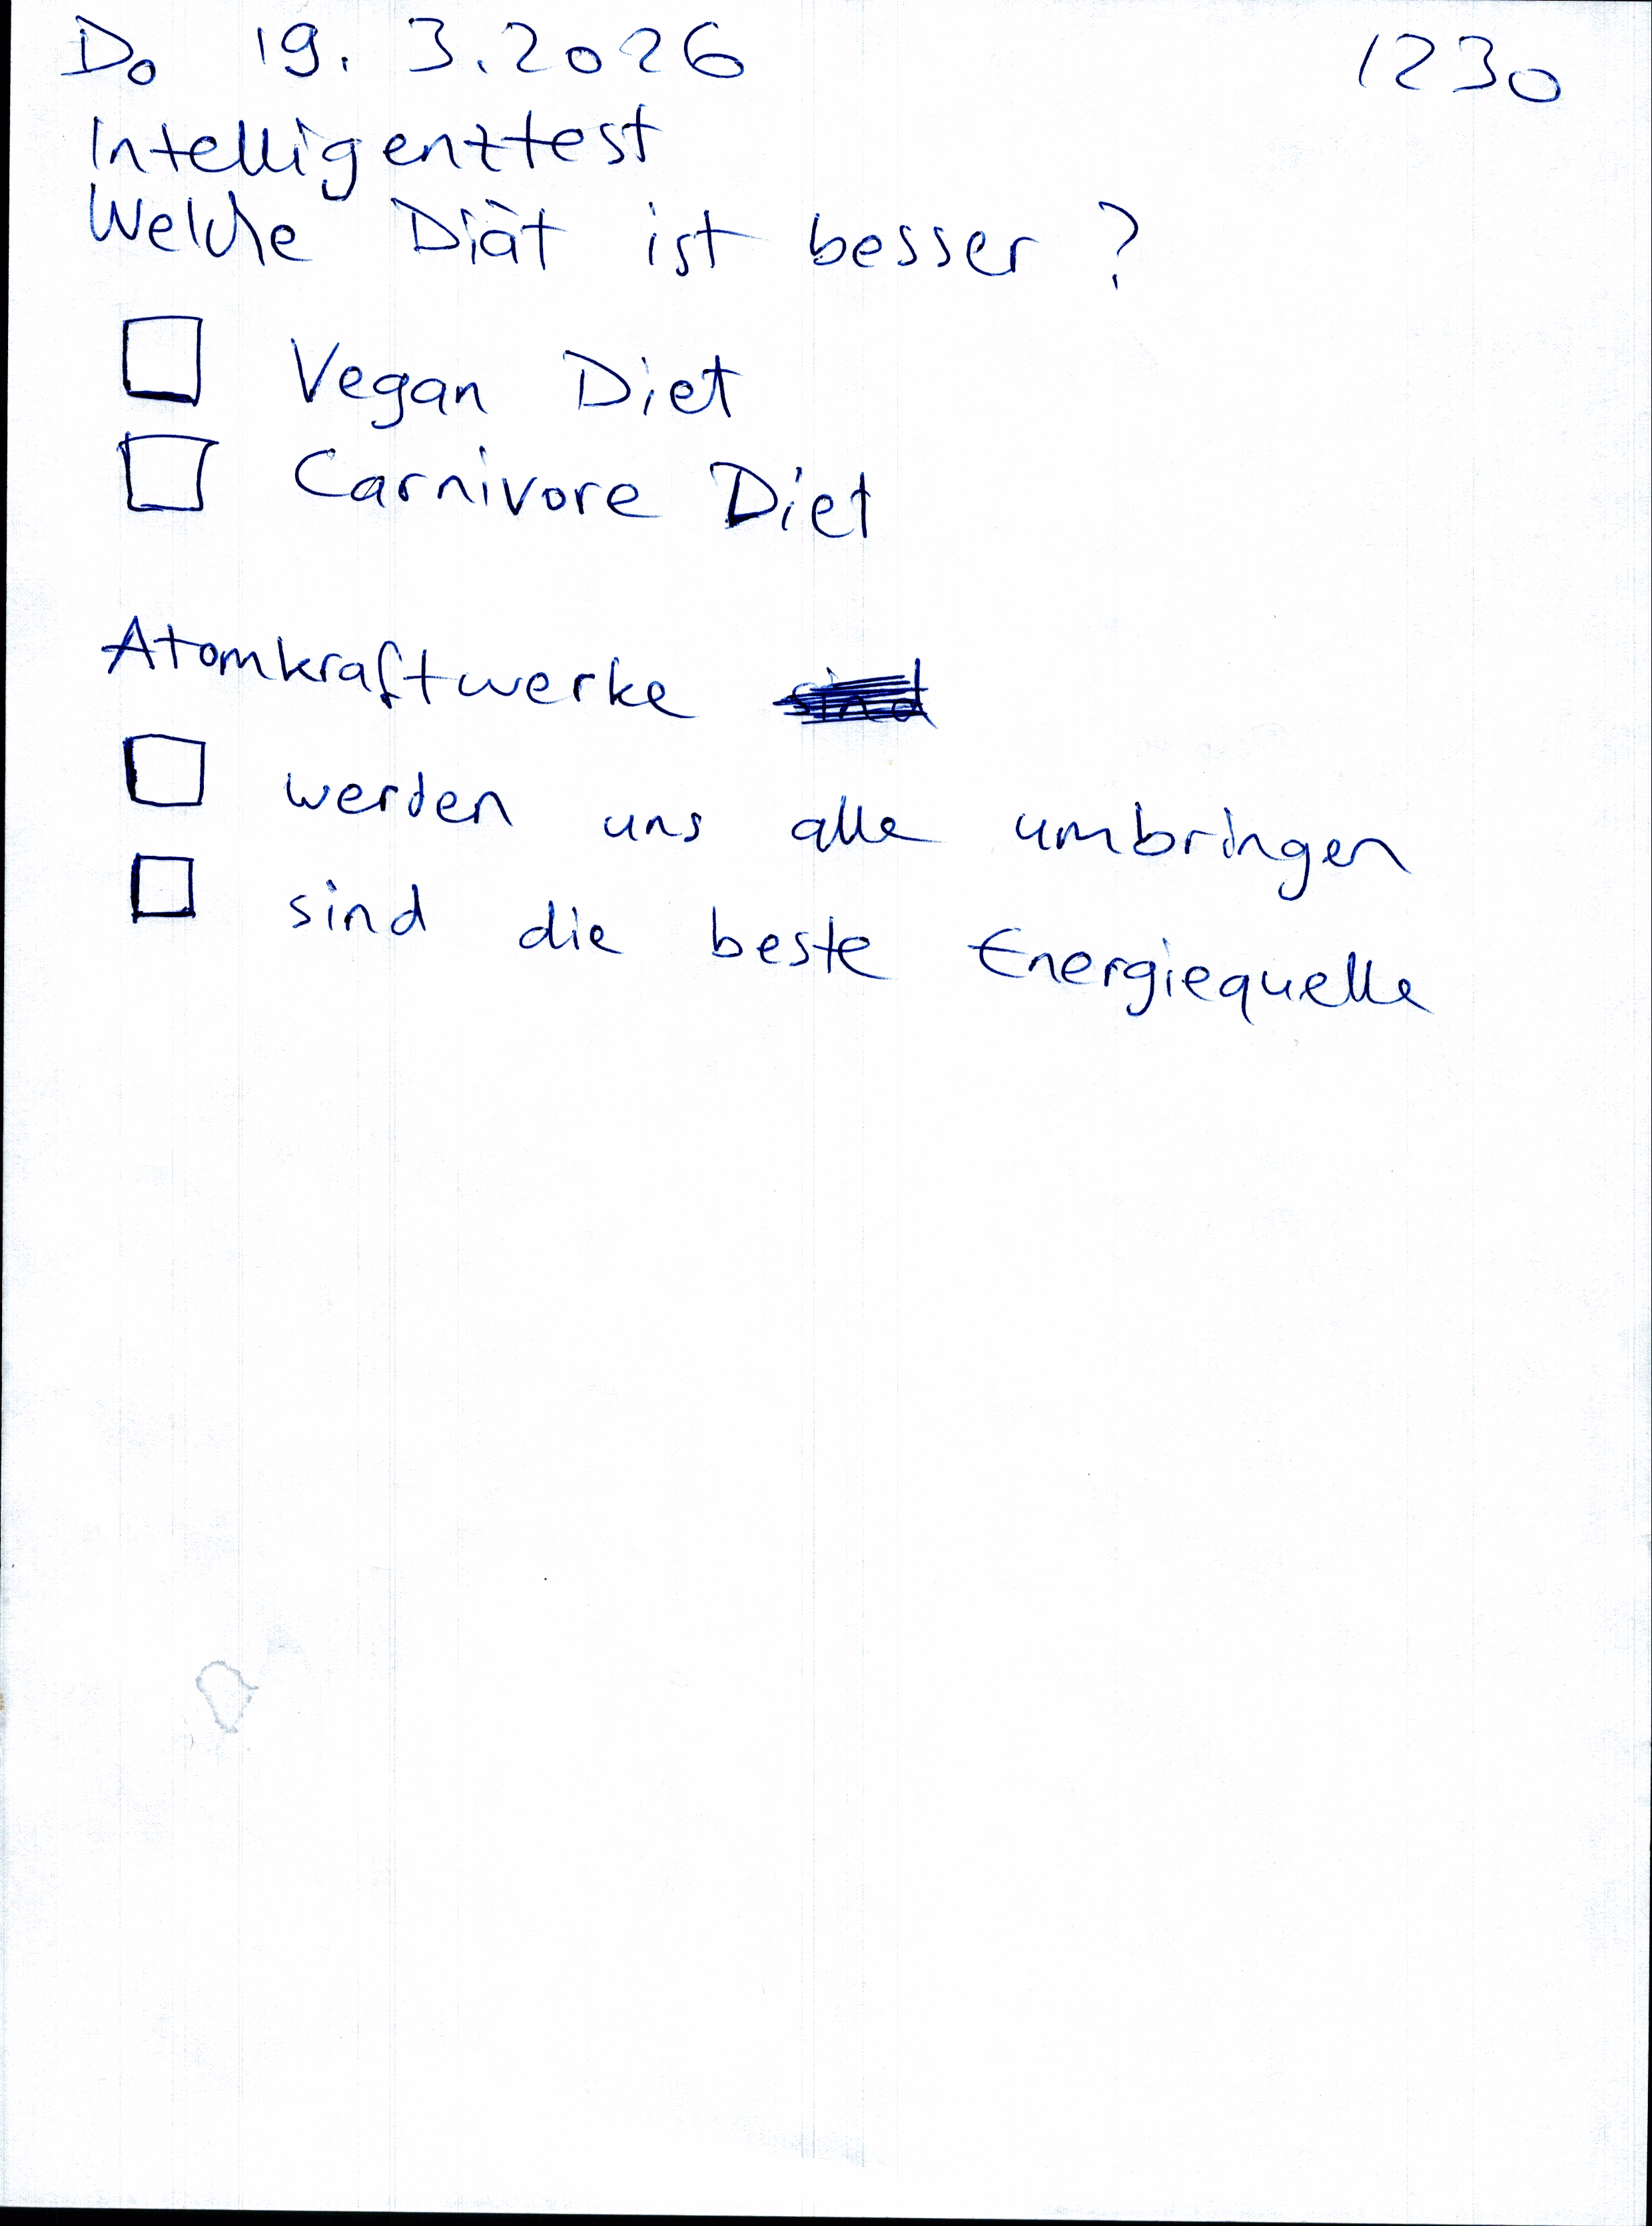 Do 19. 3. 2026 1230
Intelligenztest
Welche Diät ist besser ?
Vegan Diet
Carnivore Diet
Atomkraftwerke
werden uns alle umbringen
sind die beste Energiequelle